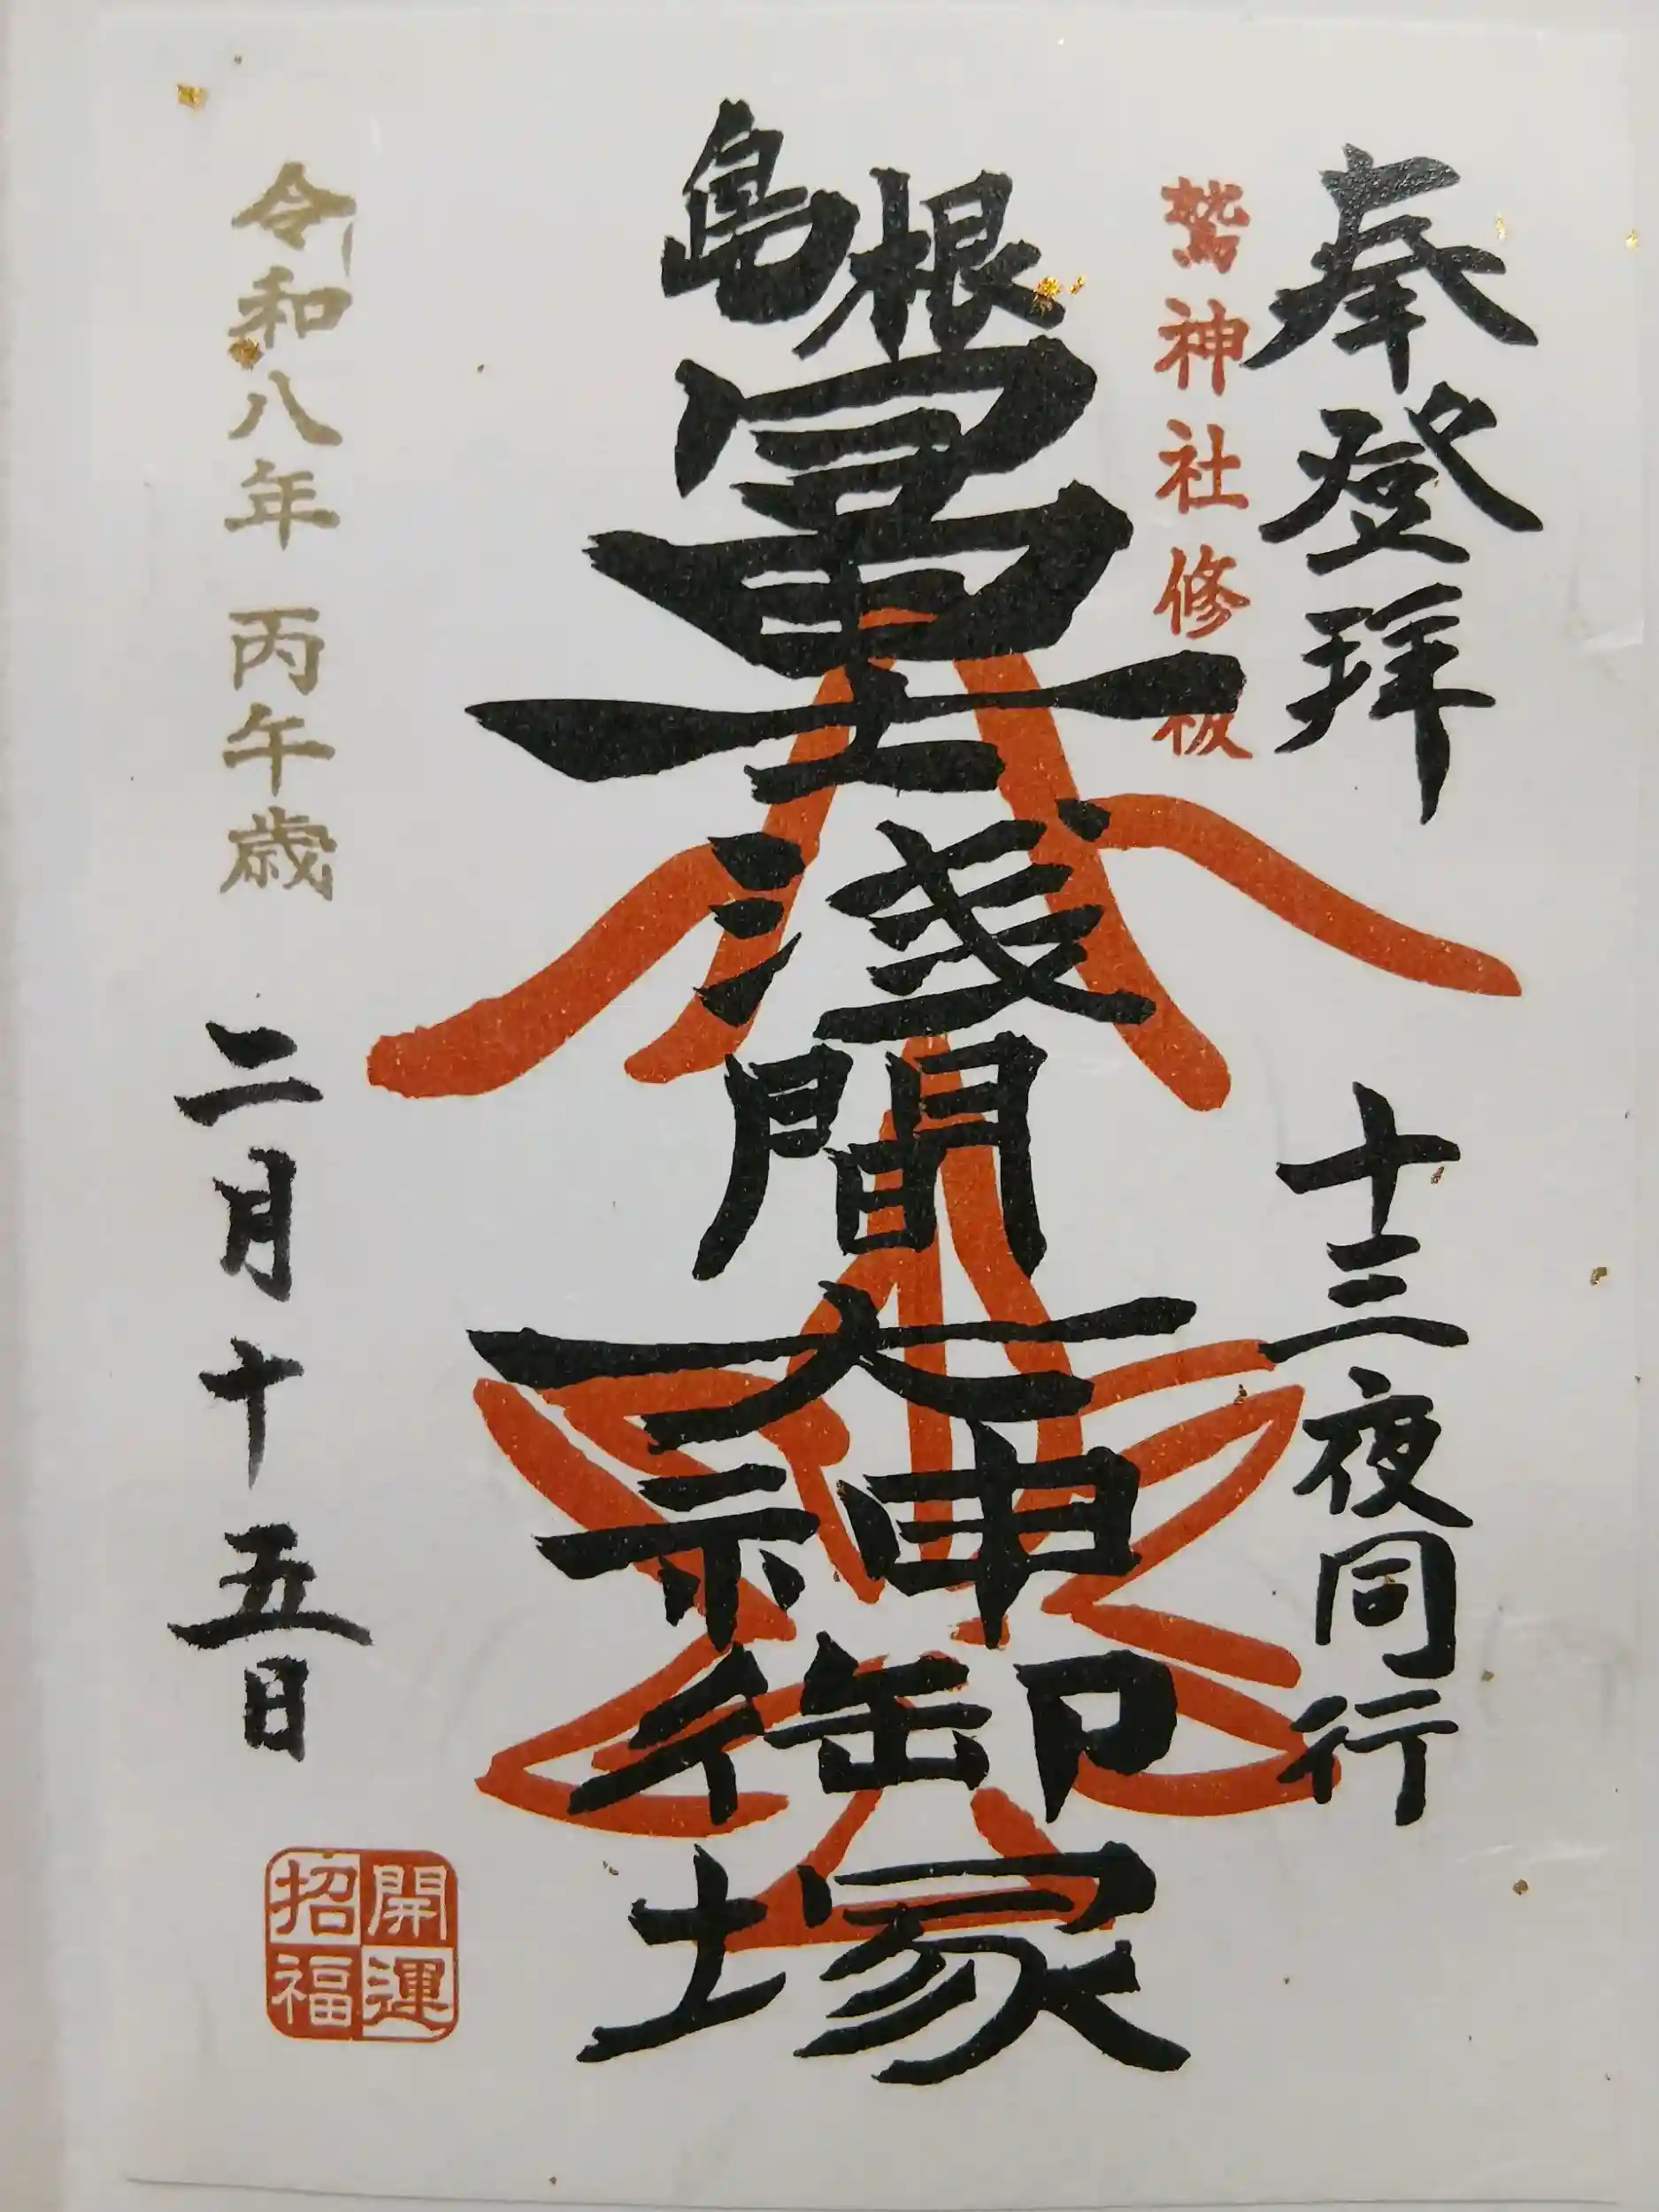 奉登拝 十三夜同行
鷲神社修板
島根
冨士浅間大神御塚
令和八年 丙午歳 二月十五日
開運
招福